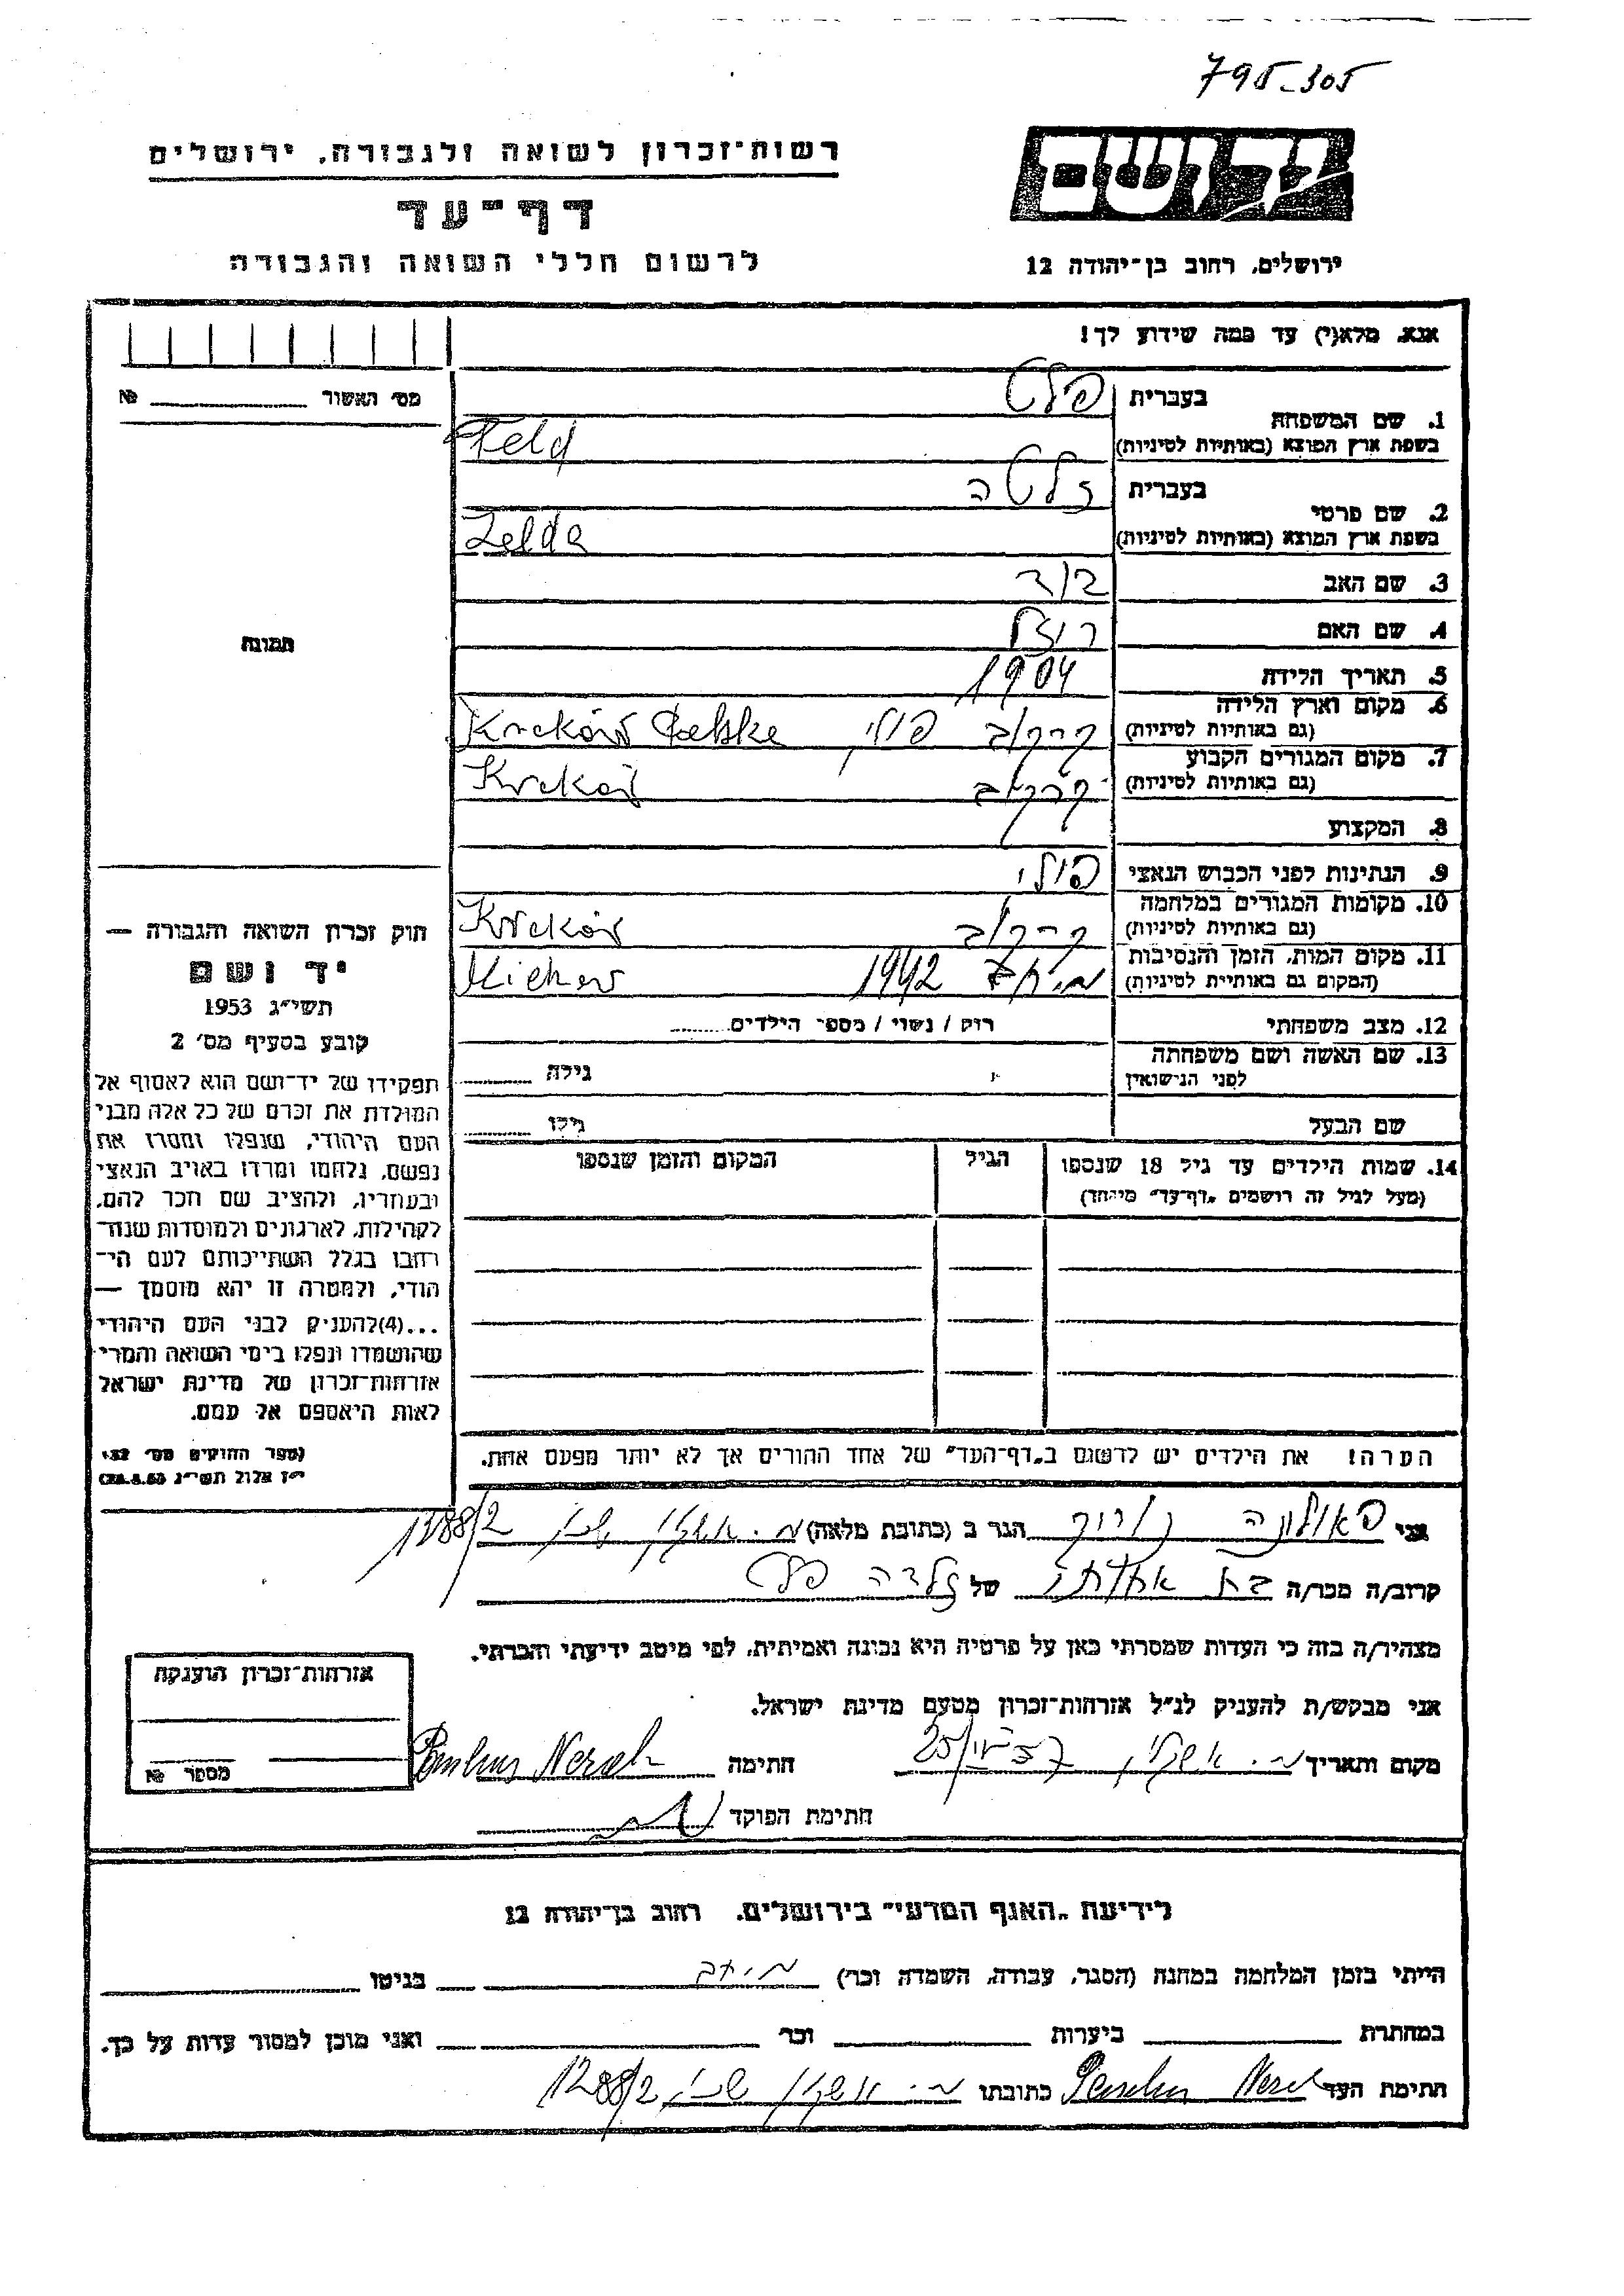 795-305
רשות־זכרון לשואה ולגבורה, ירושלים
דף־עד
לרשום חללי השואה והגבורה
יד ושם
ירושלים, רחוב בן־יהודה 12
אנא, מלא(י) עד כמה שידוע לך!
מס׳ האשור № 
1. שם המשפחה בעברית פלט
בשפת ארץ המוצא (באותיות לטיניות) Feld
2. שם פרטי בעברית זלטה
בשפת ארץ המוצא (באותיות לטיניות) Zelda
3. שם האב
4. שם האם רוזל
5. תאריך הלידה 1904
6. מקום וארץ הלידה (גם באותיות לטיניות) קרקוב פולין Kraków Polska
7. מקום המגורים הקבוע (גם באותיות לטיניות) קרקוב Kraków
8. המקצוע
9. הנתינות לפני הכבוש הנאצי פולני
10. מקומות המגורים במלחמה (גם באותיות לטיניות) קרקוב Kraków
11. מקום המות, הזמן והנסיבות (המקום גם באותיית לטיניות) 1942
12. מצב משפחתי רוק / נשוי / מספר הילדים
13. שם האשה ושם משפחתה לפני הנישואין גילה
שם הבעל גילו
14. שמות הילדים עד גיל 18 שנספו הגיל המקום והזמן שנספו
(מעל לגיל זה רושמים „דף־עד״ מיוחד)
הערה! את הילדים יש לרשום ב„דף־העד״ של אחד ההורים אך לא יותר מפעם אחת.
תמונה
חוק זכרון השואה והגבורה —
יד ושם
תשי״ג 1953
קובע בסעיף מס׳ 2
תפקידו של יד־ושם הוא לאסוף אל
המולדת את זכרם של כל אלה מבני
העם היהודי, שנפלו ומסרו את
נפשם, נלחמו ומרדו באויב הנאצי
ובעוזריו, ולהציב שם וזכר להם,
לקהילות, לארגונים ולמוסדות שנח־
רבו בגלל השתייכותם לעם הי־
הודי, ולמטרה זו יהא מוסמך —
...(4)להעניק לבני העם היהודי
שהושמדו ונפלו בימי השואה והמרי
אזרחות־זכרון של מדינת ישראל
לאות היאספם אל עמם.
(ספר החוקים מס׳ 132,
י״ז אלול תשי״ג 28.8.53)
אני פאולינה הגר ב (כתובת מלאה)
קרוב/ה מכר/ה בת של זלדה פלט
מצהיר/ה בזה כי העדות שמסרתי כאן על פרטיה היא נכונה ואמיתית, לפי מיטב ידיעתי והכרתי.
אני מבקש/ת להעניק לנ״ל אזרחות־זכרון מטעם מדינת ישראל.
מקום ותאריך חתימה
חתימת הפוקד
אזרחות־זכרון הוענקה
מספר №
לידיעת „האגף המדעי״ בירושלים, רחוב בן־יהודה 12
הייתי בזמן המלחמה במחנה (הסגר, עבודה, השמדה וכו׳) בגיטו
במחתרת ביערות וכו׳ ואני מוכן למסור עדות על כך.
חתימת העד כתובתו